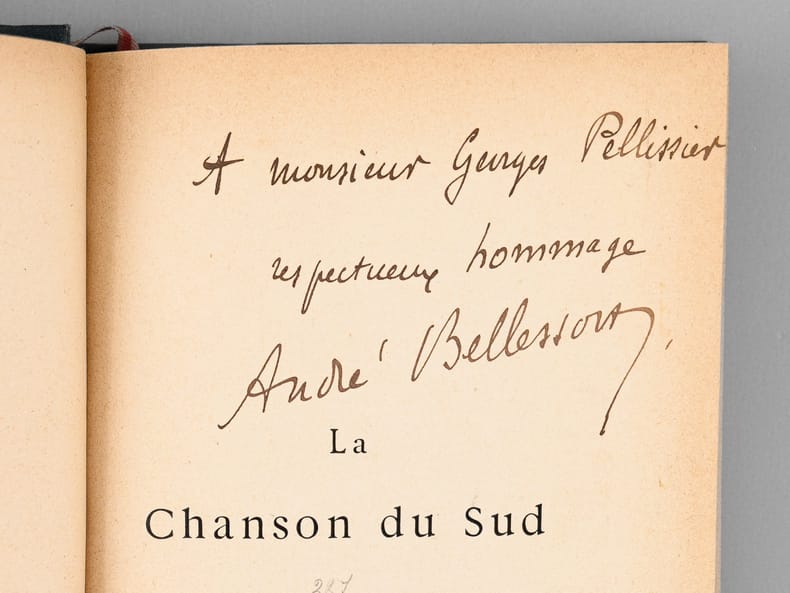 A monsieur Georges Pellissier
respectueux hommage
André Bellessort
La
Chanson du Sud